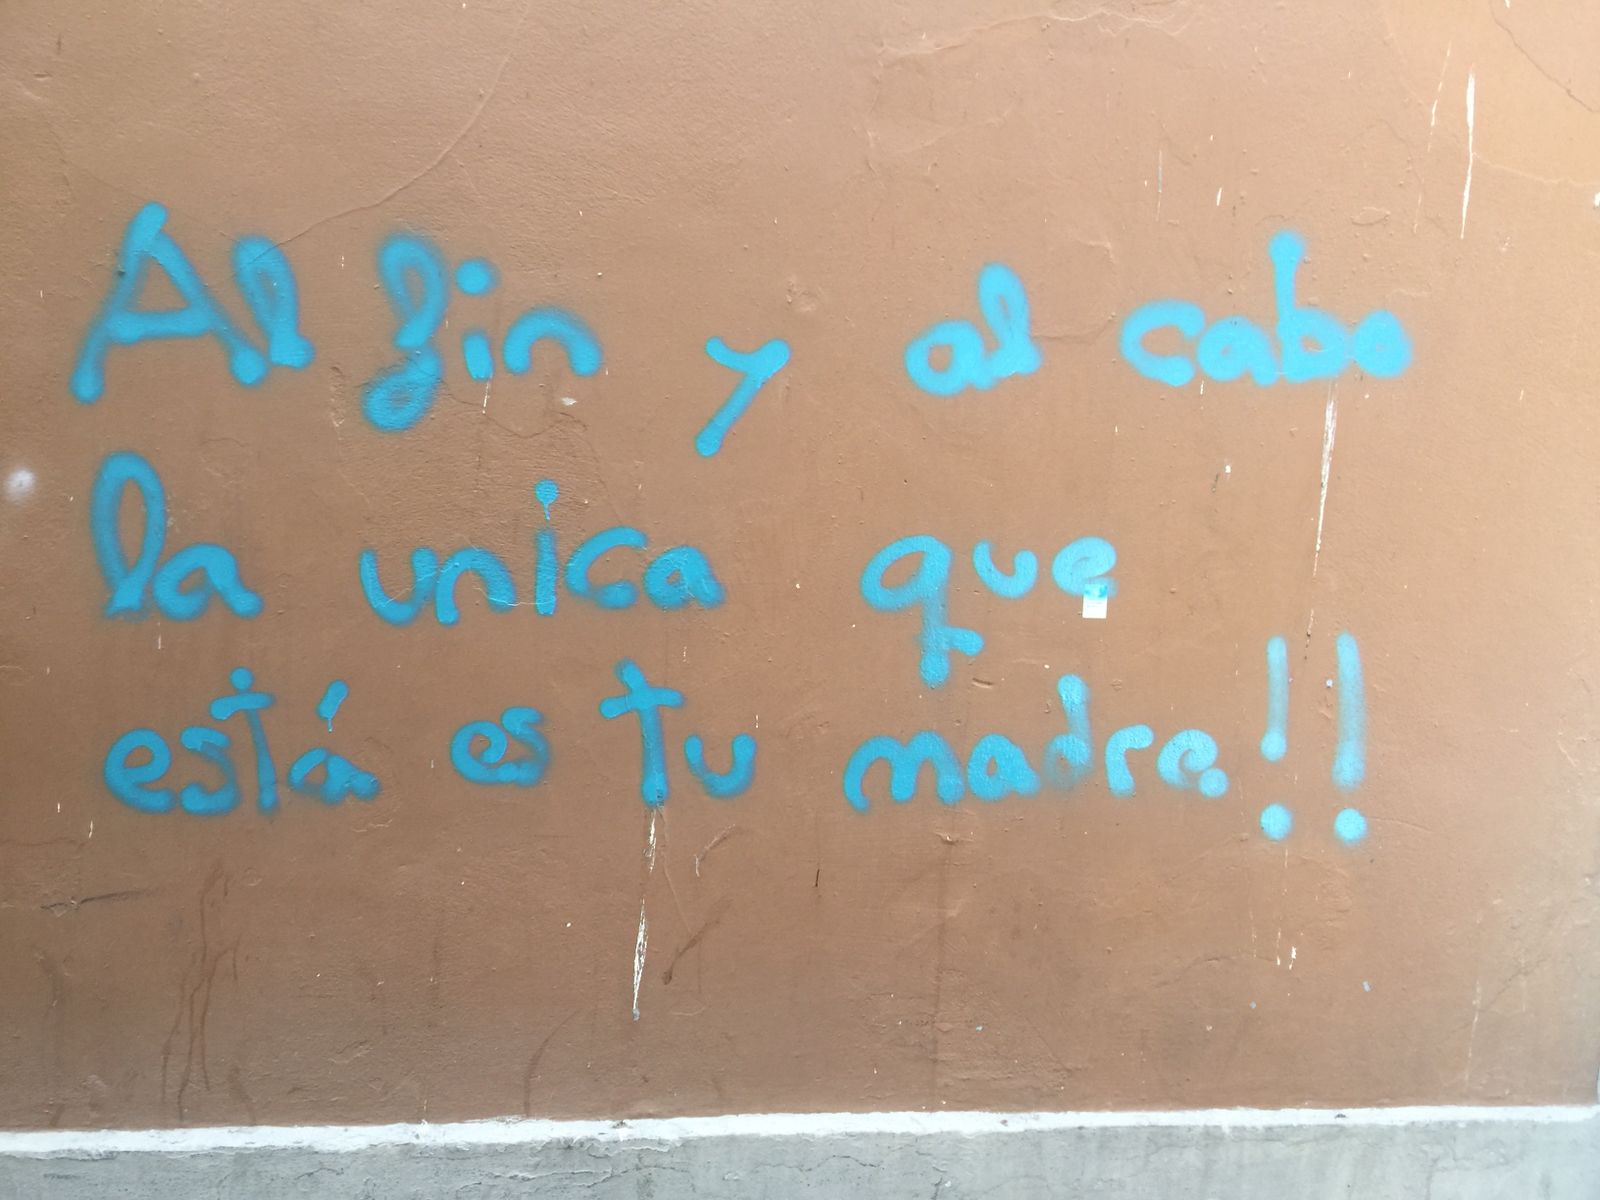 Al fin y al cabo
la unica que
está es tu madre!!